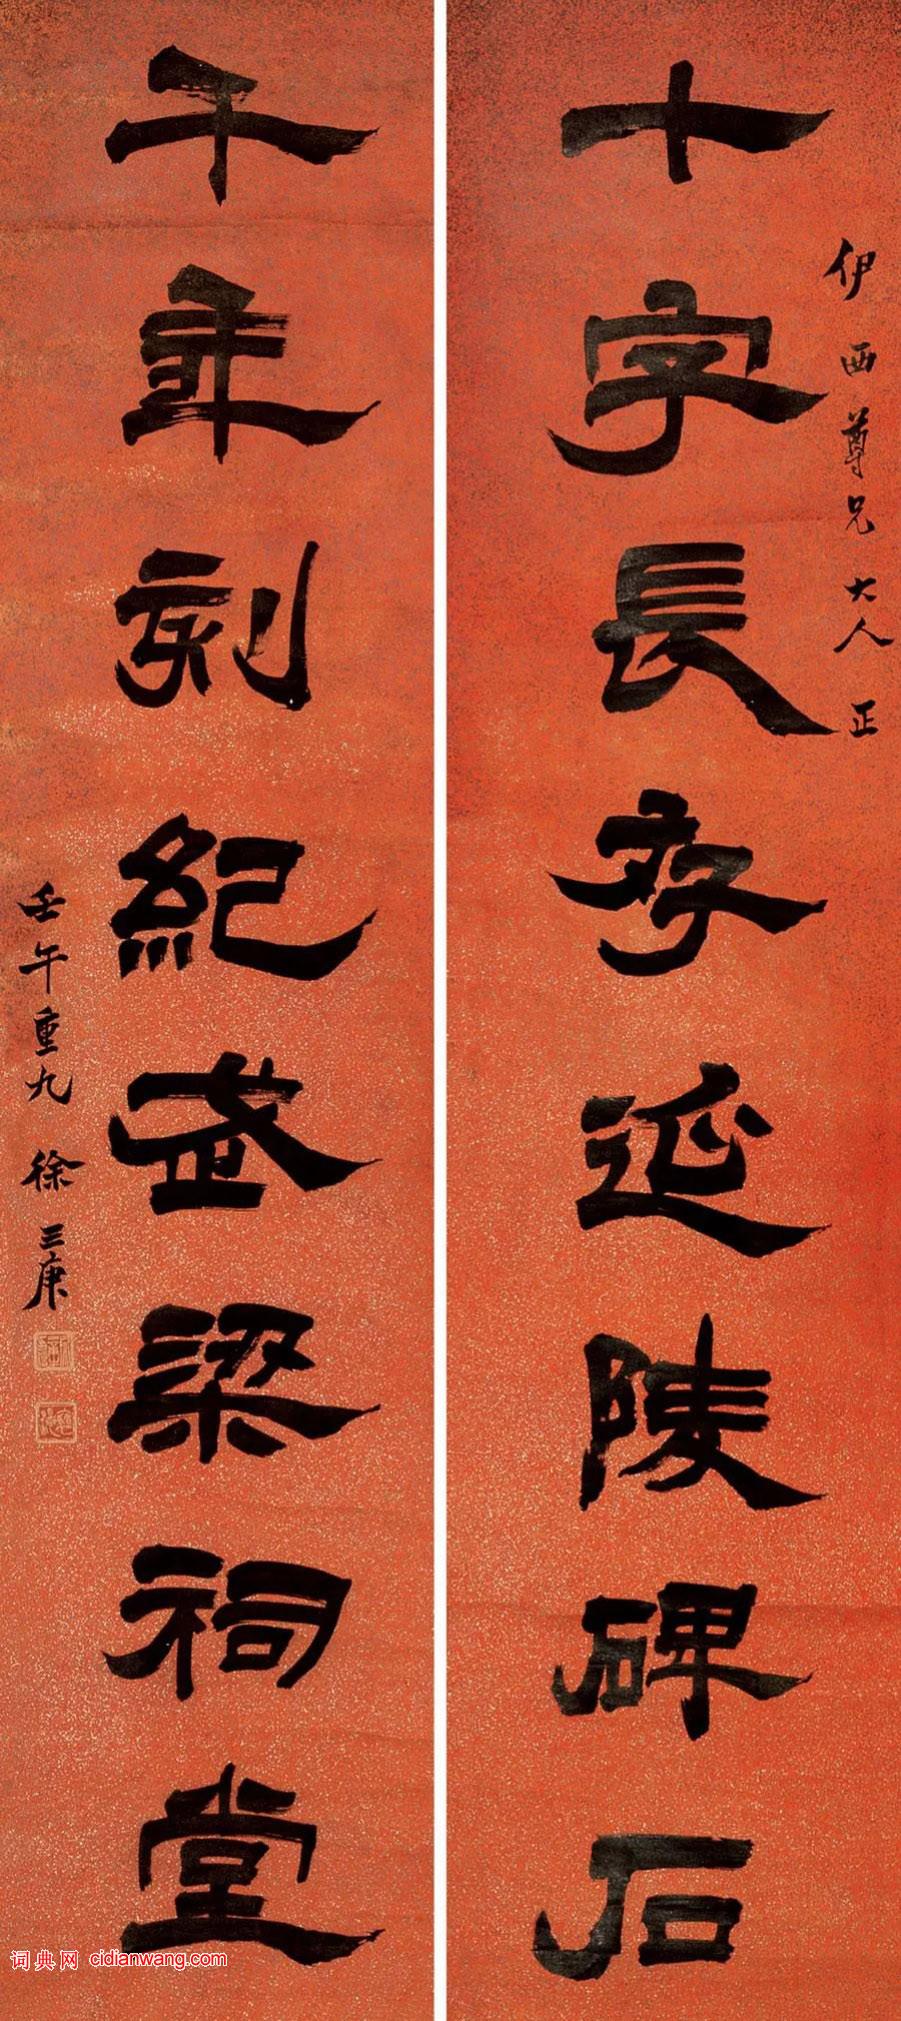 伊西尊兄大人正
十字長存延陵碑石
千年刻紀武梁祠堂
壬午重九 徐三庚
词典网 cidianwang.com